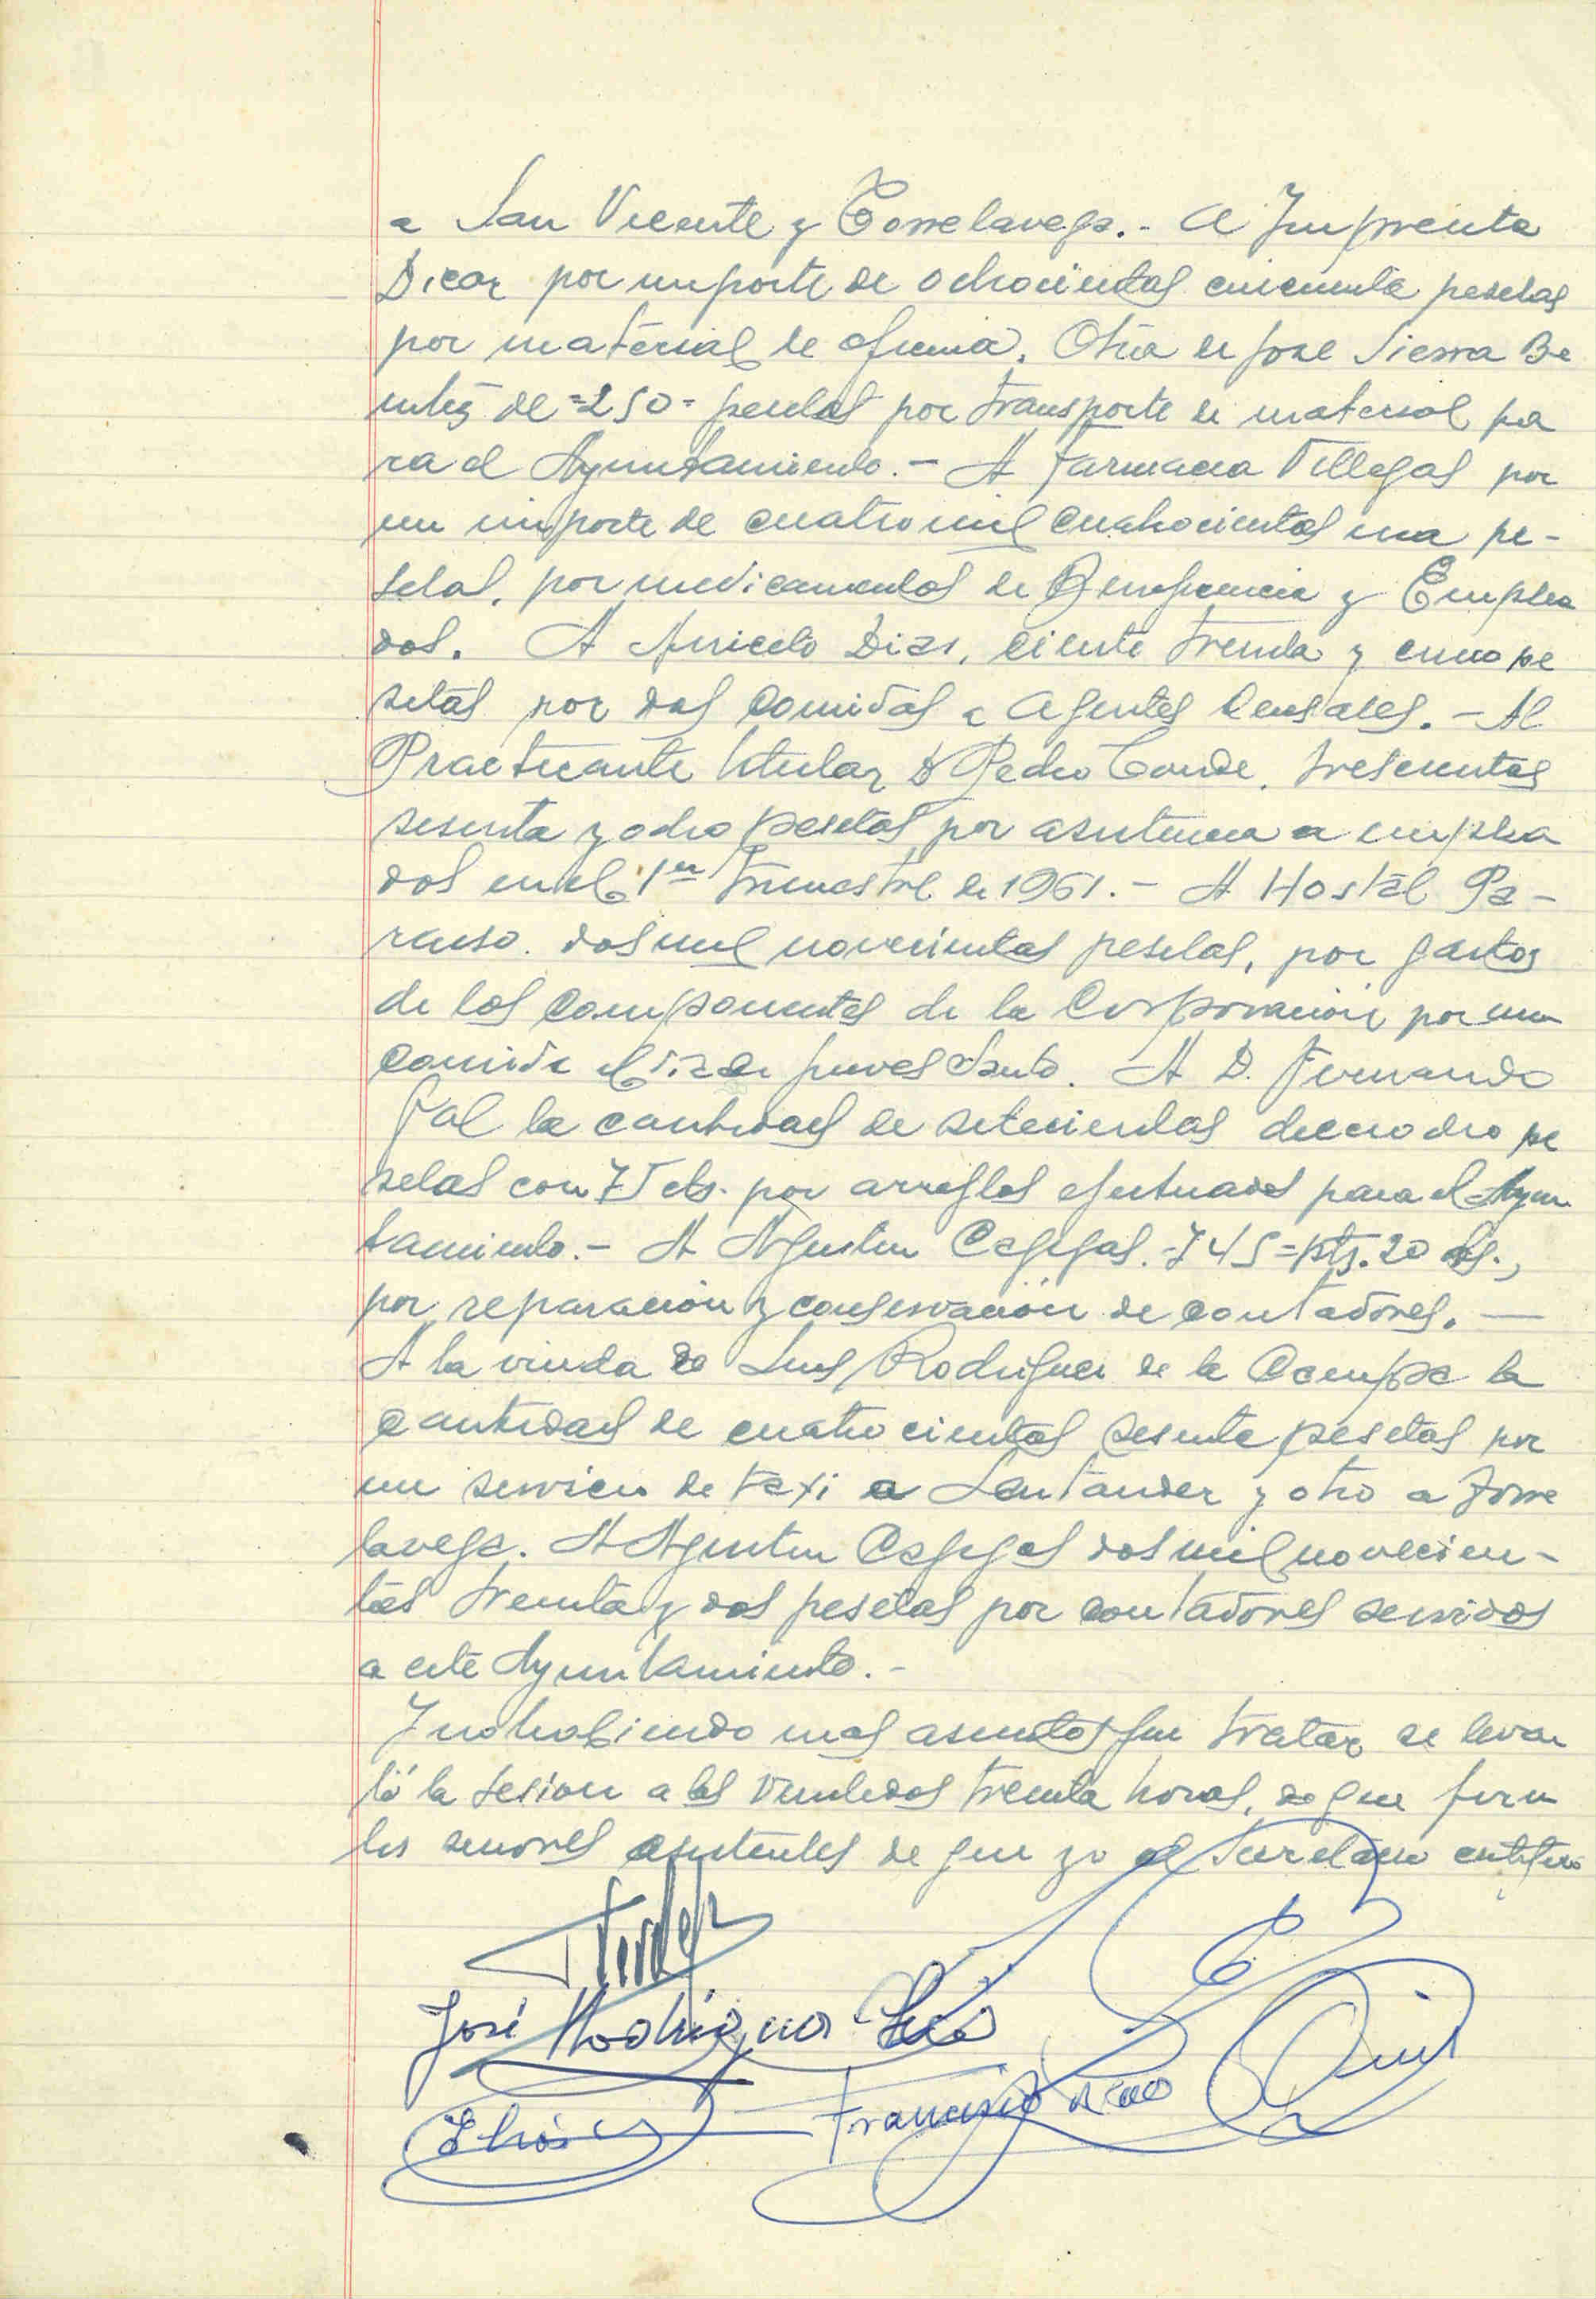 a San Vicente y Torrelavega.- A Imprenta
Dicar por importe de ochocientas cincuenta pesetas
por material de oficina. Otra de Jose Sierra Be
nitez de =250= pesetas por transporte de material pa
ra el Ayuntamiento.- A Farmacia Villegas por
un importe de cuatro mil cuatrocientas una pe-
setas, por medicamentos de Beneficencia y Emplea
dos. A Aniceto Diaz, ciento treinta y cinco pe
setas por dos comidas a Agentes Censales.- Al
Practicante titular D Pedro Conde, trescientas
sesenta y ocho pesetas por asistencia a emplea
dos en el 1er trimestre de 1961.- A Hostal Pa-
raiso. dos mil novecientas pesetas, por gastos
de los componentes de la Corporación por una
comida el dia de Jueves Santo. A D. Fernando
Gal la cantidad de setecientas dieciocho pe
setas con 75 cts. por arreglos efectuados para el Ayun
tamiento.- A Agustin Cagigas. =745= pts. 20 cts.,
por reparación y conservación de contadores. —
A la viuda de Luis Rodriguez de la Campa la
cantidad de cuatrocientas sesenta pesetas por
un servicio de taxi a Santander y otro a Torre
lavega. A Agustin Cagigas dos mil novecien-
tas treinta y dos pesetas por contadores servidos
a este Ayuntamiento.-
Y no habiendo mas asuntos que tratar se levan
tó la sesion a las veintidos treinta horas, de que firm
los señores asistentes de que yo el Secretario certifico
José Rodriguez
Francisco